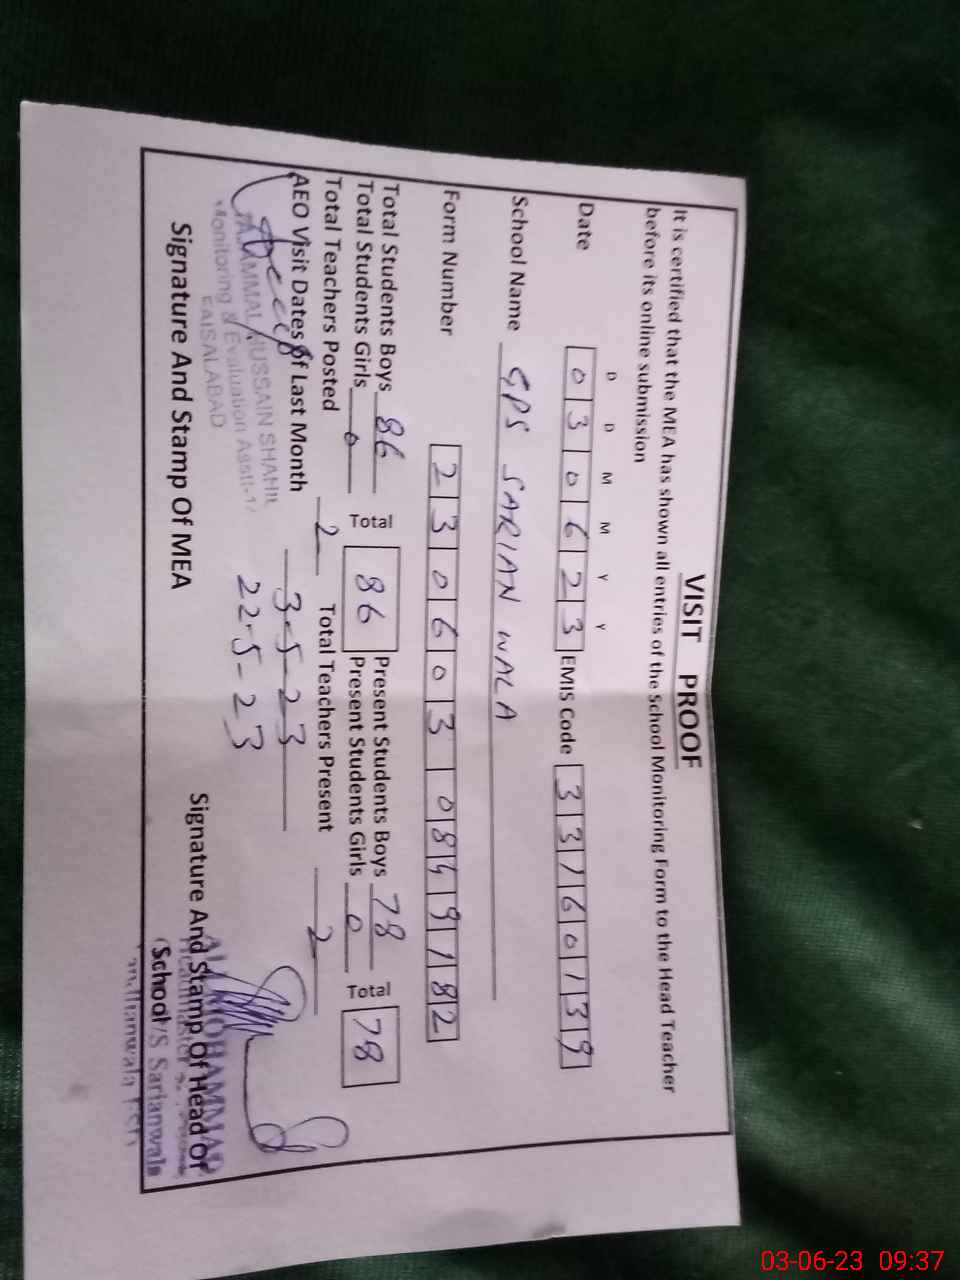 VISIT PROOF
It is certified that the MEA has shown all entries of the School Monitoring Form to the Head Teacher
before its online submission
D D M M Y Y
Date 0 3 0 6 2 3 EMIS Code 3 3 1 6 0 1 3 9
School Name GPS SARIAN WALA
Form Number 2 3 0 6 0 3 0 8 4 9 1 8 2
Total Students Boys 86 Total 86 Present Students Boys 78 Total 78
Total Students Girls 0 Present Students Girls 0
Total Teachers Posted 2 Total Teachers Present 2
AEO Visit Dates of Last Month 3-5-23
22-5-23
HUSSAIN SHAHI
Monitoring & Evaluation Asstt-17
FAISALABAD
Signature And Stamp Of MEA
ALI MOHAMMAD
Signature And Stamp Of Head Of
School
Sarianwala
03-06-23 09:37